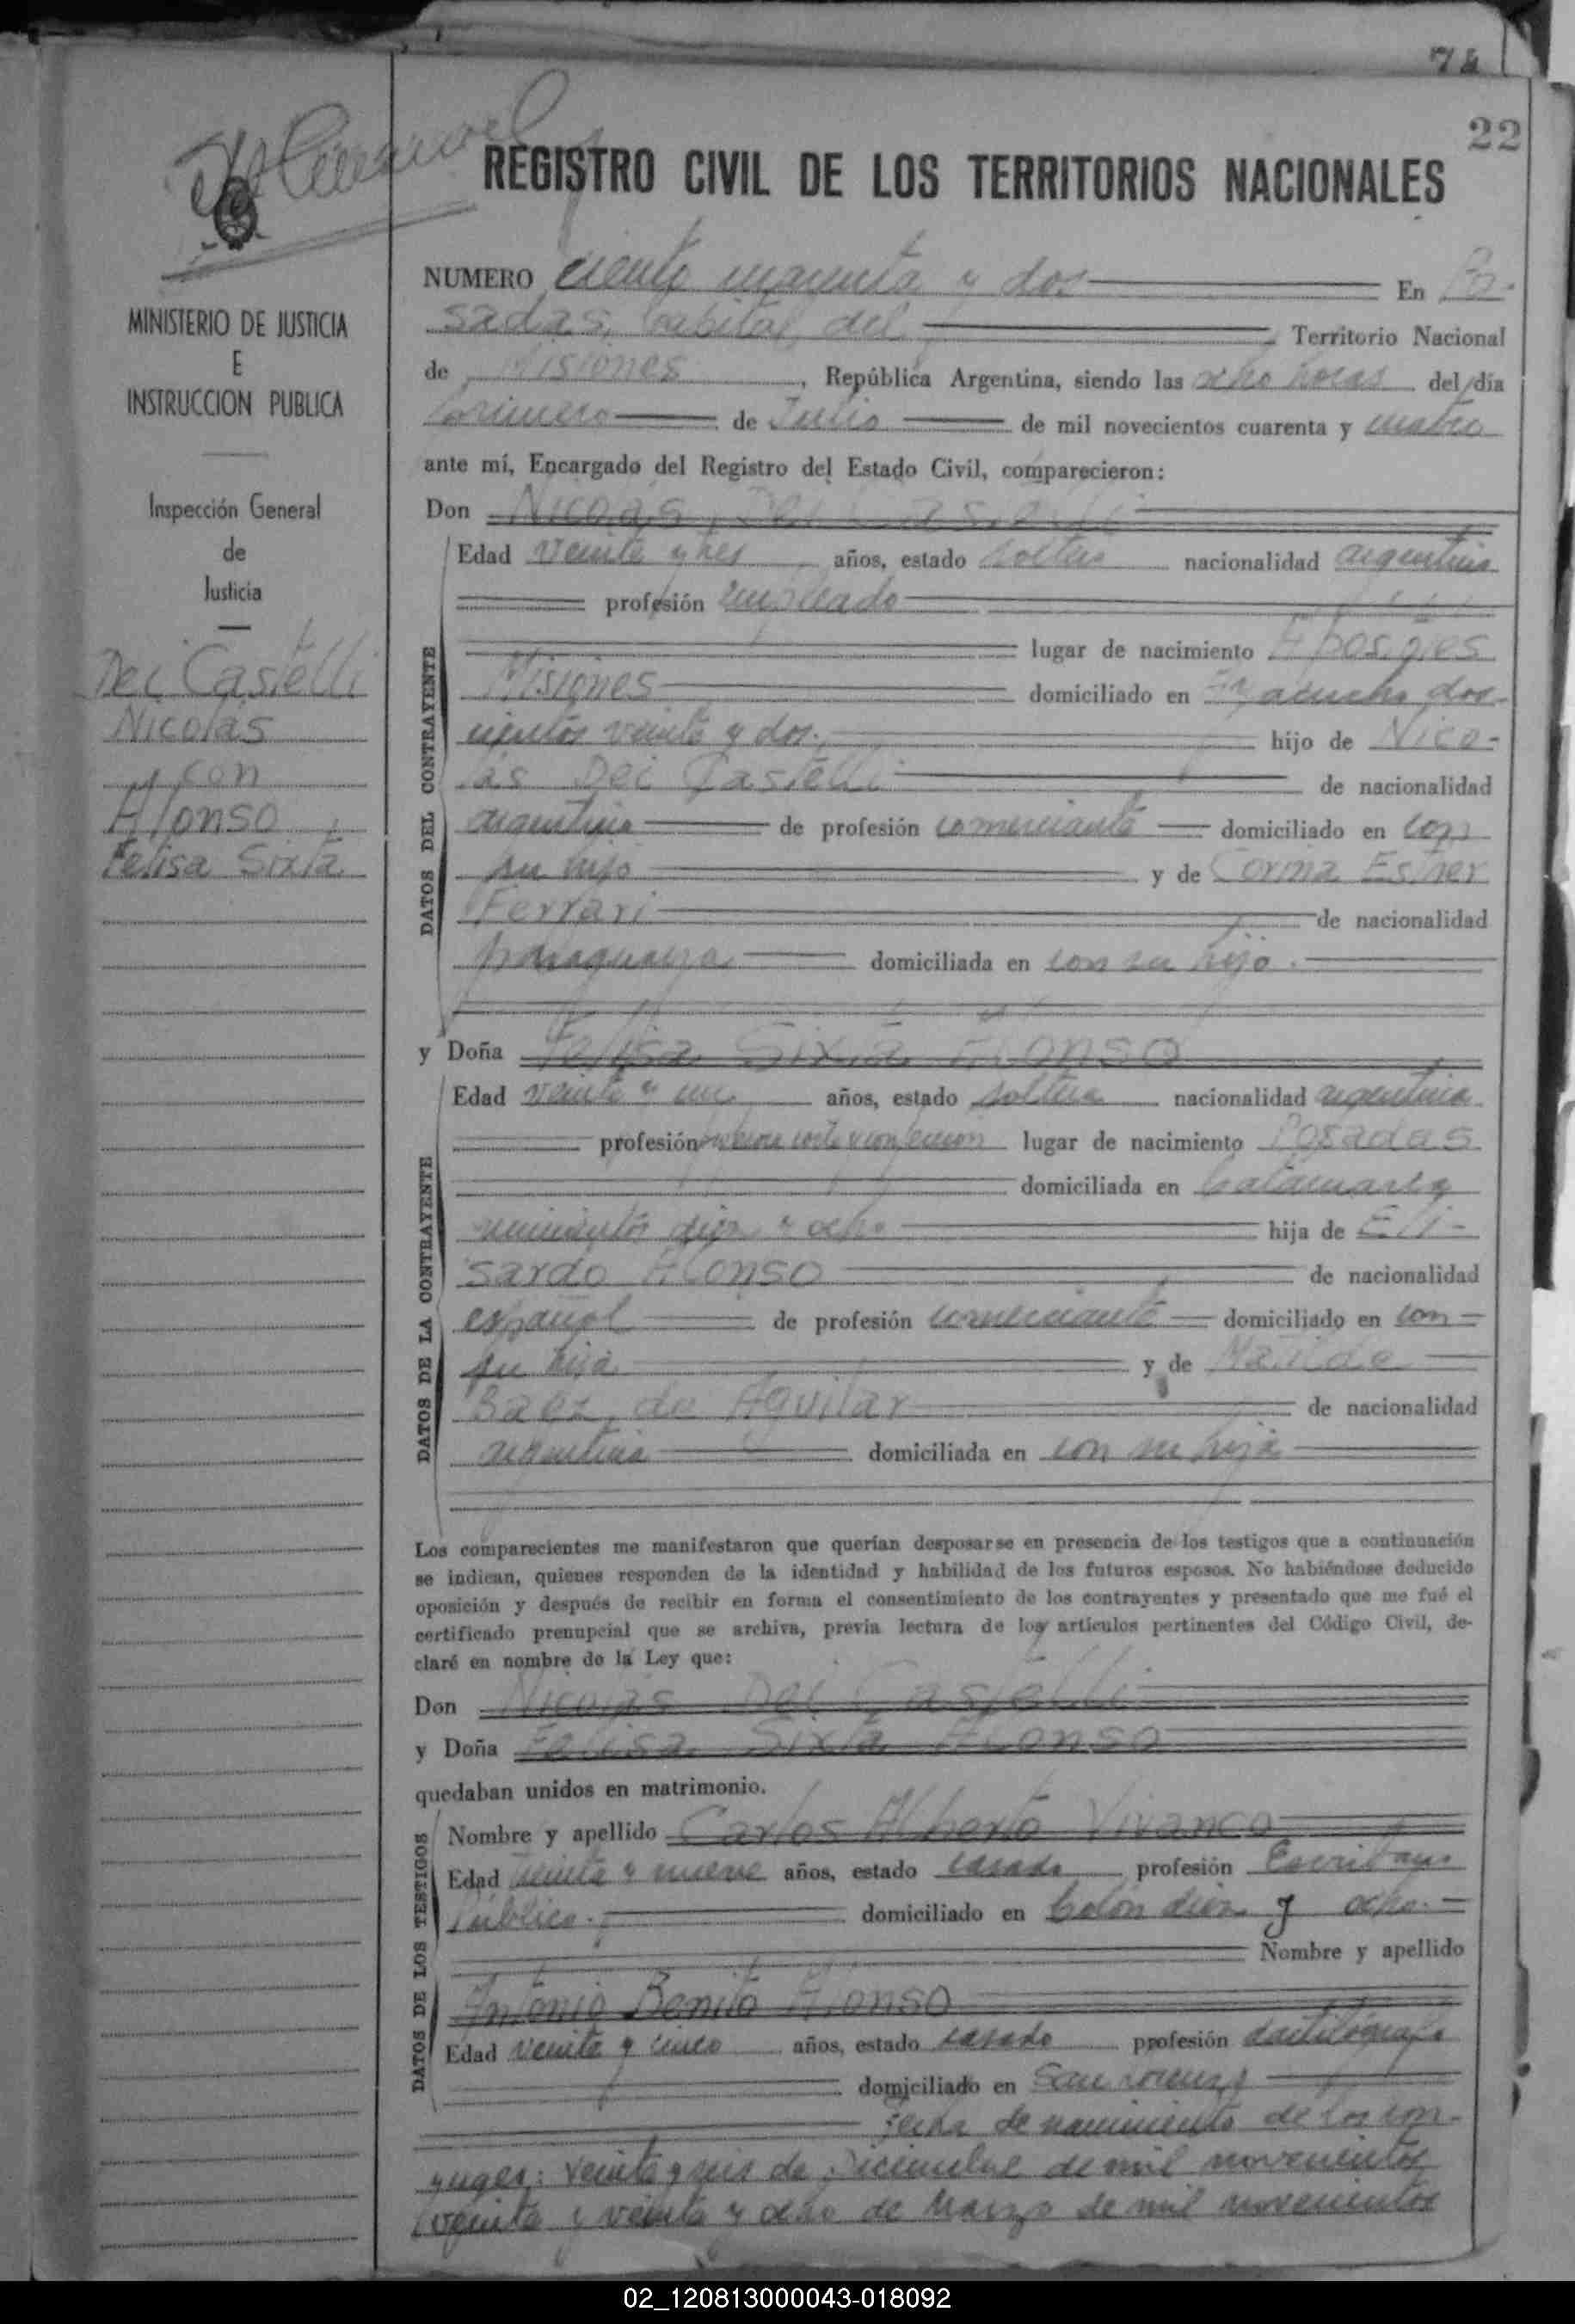 74
22
REGISTRO CIVIL DE LOS TERRITORIOS NACIONALES
MINISTERIO DE JUSTICIA
E
INSTRUCCION PUBLICA
Inspección General
de
Justicia
Dei Castelli
Nicolás
y con
Alfonso
Felisa Sixta
NUMERO ciento cuarenta y dos En Po-
sadas, Capital del Territorio Nacional
de Misiones, República Argentina, siendo las ocho horas del día
primero de Julio de mil novecientos cuarenta y cuatro
ante mí, Encargado del Registro del Estado Civil, comparecieron:
Don Nicolás Dei Castelli
DATOS DEL CONTRAYENTE
Edad veinte y tres años, estado soltero nacionalidad argentino
profesión empleado
lugar de nacimiento Apóstoles
Misiones domiciliado en Ayacucho dos-
cientos veinte y dos. hijo de Nico-
lás Dei Castelli de nacionalidad
argentino de profesión comerciante domiciliado en con
su hijo y de Corina Esther
Ferrari de nacionalidad
paraguaya domiciliada en con su hijo.
y Doña Felisa Sixta Alonso
DATOS DE LA CONTRAYENTE
Edad veinte y un años, estado soltera nacionalidad argentina
profesión corte y confeccion lugar de nacimiento Posadas
domiciliada en Catamarca
diez y ocho hija de Eli-
sardo Alonso de nacionalidad
español de profesión comerciante domiciliado en con
su hija y de Matilde
Baez de Aguilar de nacionalidad
argentina domiciliada en con su hija
Los comparecientes me manifestaron que querían desposarse en presencia de los testigos que a continuación
se indican, quienes responden de la identidad y habilidad de los futuros esposos. No habiéndose deducido
oposición y después de recibir en forma el consentimiento de los contrayentes y presentado que me fué el
certificado prenupcial que se archiva, previa lectura de los artículos pertinentes del Código Civil, de-
claré en nombre de la Ley que:
Don Nicolás Dei Castelli
y Doña Felisa Sixta Alonso
quedaban unidos en matrimonio.
DATOS DE LOS TESTIGOS
Nombre y apellido Carlos Alberto Vivanco
Edad treinta y nueve años, estado casado profesión Escribano
Público. domiciliado en Colón diez y ocho.
Nombre y apellido
Antonio Benito Alonso
Edad veinte y cinco años, estado casado profesión dactilógrafo
domiciliado en San Lorenzo
Fecha de nacimiento de los con-
yuges: veinte y seis de Diciembre de mil novecientos
veinte y veinte y ocho de Marzo de mil novecientos
02_120813000043-018092